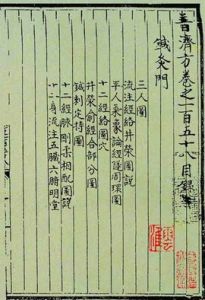 普濟方卷之一百五十八目錄
鍼灸門
三人圖
流注經絡井榮圖說
平人氣象論經隧周環圖
十二經絡圖穴
井榮俞經合部分圖
鍼刺定時圖
十二經脉剛柔相配圖說
十二身流注五臟六腑明堂